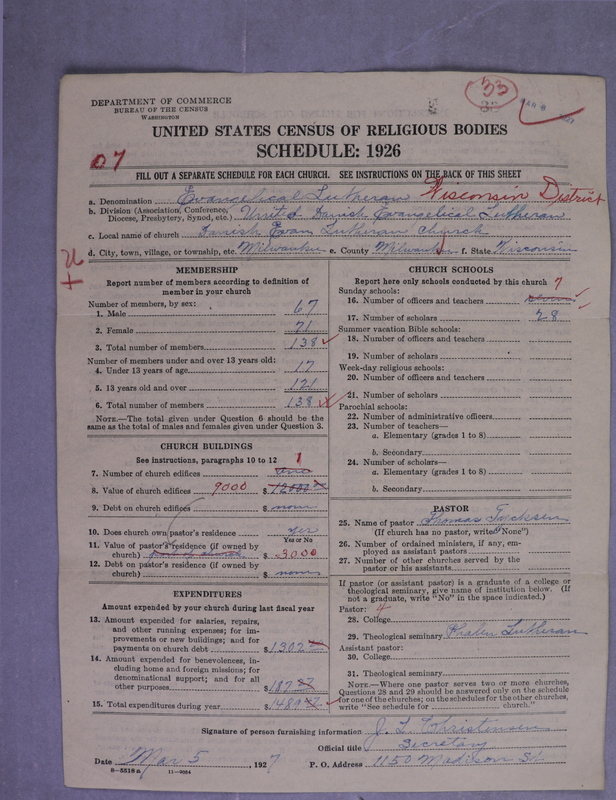 33
DEPARTMENT OF COMMERCE
BUREAU OF THE CENSUS
WASHINGTON
UNITED STATES CENSUS OF RELIGIOUS BODIES
SCHEDULE: 1926
07
FILL OUT A SEPARATE SCHEDULE FOR EACH CHURCH. SEE INSTRUCTIONS ON THE BACK OF THIS SHEET
a. Denomination Evangelical Lutheran Wisconsin District
b. Division (Association, Conference, Diocese, Presbytery, Synod, etc.) United Danish Evangelical Lutheran
c. Local name of church Danish Evan Lutheran Church
d. City, town, village, or township, etc. Milwaukee e. County Milwaukee f. State Wisconsin
MEMBERSHIP
Report number of members according to definition of
member in your church
Number of members, by sex:
1. Male 67
2. Female 71
3. Total number of members 138
Number of members under and over 13 years old:
4. Under 13 years of age 17
5. 13 years old and over 121
6. Total number of members 138
NOTE.—The total given under Question 6 should be the
same as the total of males and females given under Question 3.
CHURCH BUILDINGS
See instructions, paragraphs 10 to 12
7. Number of church edifices 1
8. Value of church edifices 9000 $ 12000
9. Debt on church edifices $ none
10. Does church own pastor's residence yes
Yes or No
11. Value of pastor's residence (if owned by
church) $ 3000
12. Debt on pastor's residence (if owned by
church) $ none
EXPENDITURES
Amount expended by your church during last fiscal year
13. Amount expended for salaries, repairs,
and other running expenses; for im-
provements or new buildings; and for
payments on church debt $ 1302
14. Amount expended for benevolences, in-
cluding home and foreign missions; for
denominational support; and for all
other purposes $ 187
15. Total expenditures during year $ 1489
CHURCH SCHOOLS
Report here only schools conducted by this church
Sunday schools:
16. Number of officers and teachers 7
17. Number of scholars 28
Summer vacation Bible schools:
18. Number of officers and teachers
19. Number of scholars
Week-day religious schools:
20. Number of officers and teachers
21. Number of scholars
Parochial schools:
22. Number of administrative officers
23. Number of teachers—
a. Elementary (grades 1 to 8)
b. Secondary
24. Number of scholars—
a. Elementary (grades 1 to 8)
b. Secondary
PASTOR
25. Name of pastor Thomas
(If church has no pastor, write "None")
26. Number of ordained ministers, if any, em-
ployed as assistant pastors
27. Number of other churches served by the
pastor or his assistants
If pastor (or assistant pastor) is a graduate of a college or
theological seminary, give name of institution below. (If
not a graduate, write "No" in the space indicated.)
Pastor: 4
28. College
29. Theological seminary Lutheran
Assistant pastor:
30. College
31. Theological seminary
NOTE.—Where one pastor serves two or more churches,
Questions 28 and 29 should be answered only on the schedule
for one of the churches; on the schedules for the other churches,
write "See schedule for church."
Signature of person furnishing information J. L. Christensen
Official title Secretary
Date Mar 5, 1927 P. O. Address 1150 Medison St.
8—5518 a 11—9034